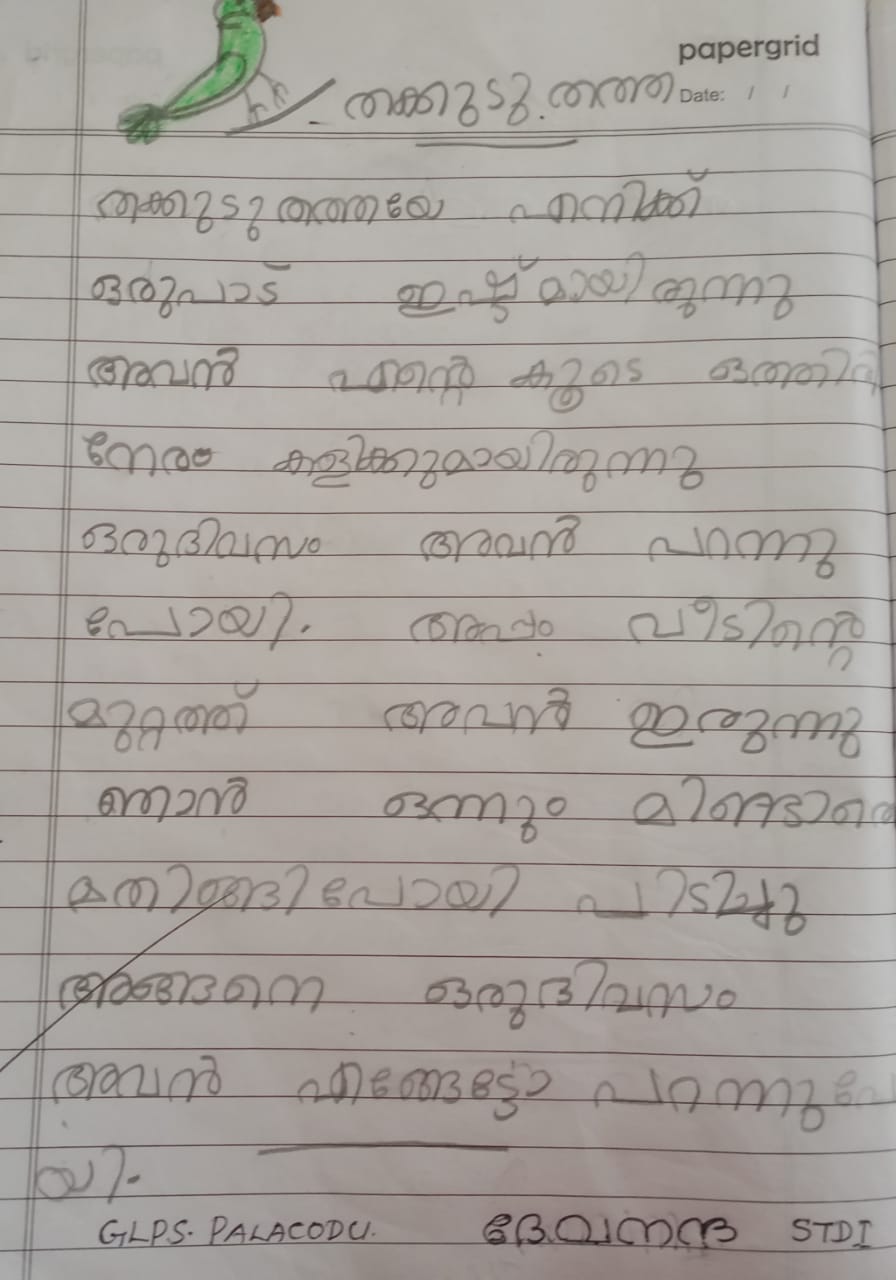 papergrid
Date: / /
തക്കുടു തത്ത
തക്കുടുതത്തയെ എനിക്ക്
ഒരുപാട് ഇഷ്ട്മായിരുന്നു
അവൻ എന്റെ കൂടെ ഒത്തിരി
നേരം കളിക്കുമായിരുന്നു
ഒരുദിവസം അവൻ പറന്നു
പോയി. അപ്പം വീടിന്റെ
മുറ്റത്ത് അവൻ ഇരുന്നു
ഞാൻ ഒന്നും മിണ്ടാതെ
പതിങ്ങിപോയി പിടിച്ചു
അങ്ങനെ ഒരുദിവസം
അവൻ എങ്ങോട്ടോ പറന്നുപോ
യി.
GLPS. PALACODU. ദേവനന്ദ STDI